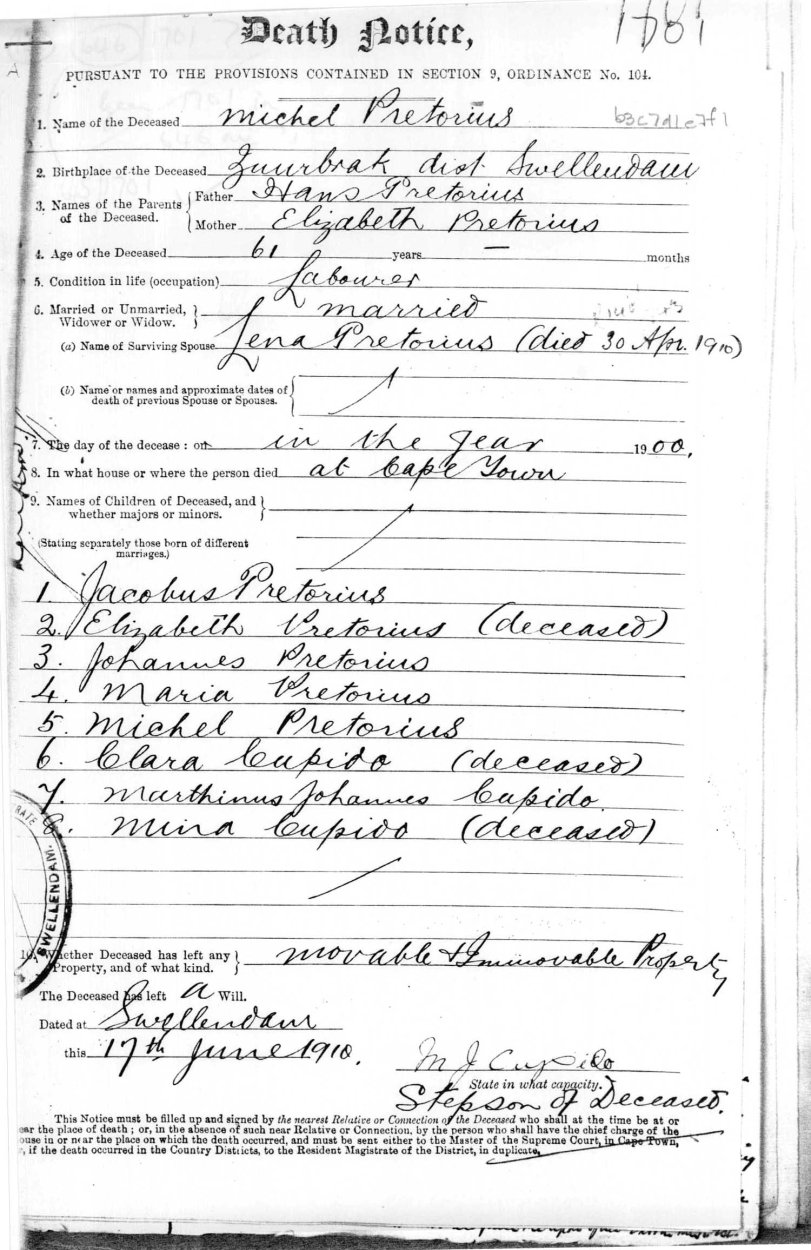 Death Notice,
1781
PURSUANT TO THE PROVISIONS CONTAINED IN SECTION 9, ORDINANCE No. 104.
1. Name of the Deceased Michel Pretorius
b3c7d1e7f1
2. Birthplace of the Deceased Zuurbrak dist Swellendam
3. Names of the Parents of the Deceased. Father Hans Pretorius
Mother Elizabeth Pretorius
4. Age of the Deceased 61 years — months
5. Condition in life (occupation) Labourer
6. Married or Unmarried, Widower or Widow. married
(a) Name of Surviving Spouse Lena Pretorius (died 30 Apr. 1910)
(b) Name or names and approximate dates of
death of previous Spouse or Spouses.
7. The day of the decease : on in the year 1900.
8. In what house or where the person died at Cape Town
9. Names of Children of Deceased, and
whether majors or minors.
(Stating separately those born of different
marriages.)
1 Jacobus Pretorius
2. Elizabeth Pretorius (deceased)
3. Johannes Pretorius
4. Maria Pretorius
5. Michel Pretorius
6. Clara Cupido (deceased)
7. Marthinus Johannes Cupido
8. Mina Cupido (deceased)
SWELLENDAM.
10. Whether Deceased has left any
Property, and of what kind. movable & Immovable Property
The Deceased has left a Will.
Dated at Swellendam
this 17th June 1910.
M J Cupido
State in what capacity.
Stepson of Deceased.
This Notice must be filled up and signed by the nearest Relative or Connection of the Deceased who shall at the time be at or
ear the place of death ; or, in the absence of such near Relative or Connection, by the person who shall have the chief charge of the
ouse in or near the place on which the death occurred, and must be sent either to the Master of the Supreme Court, in Cape Town,
, if the death occurred in the Country Districts, to the Resident Magistrate of the District, in duplicate.